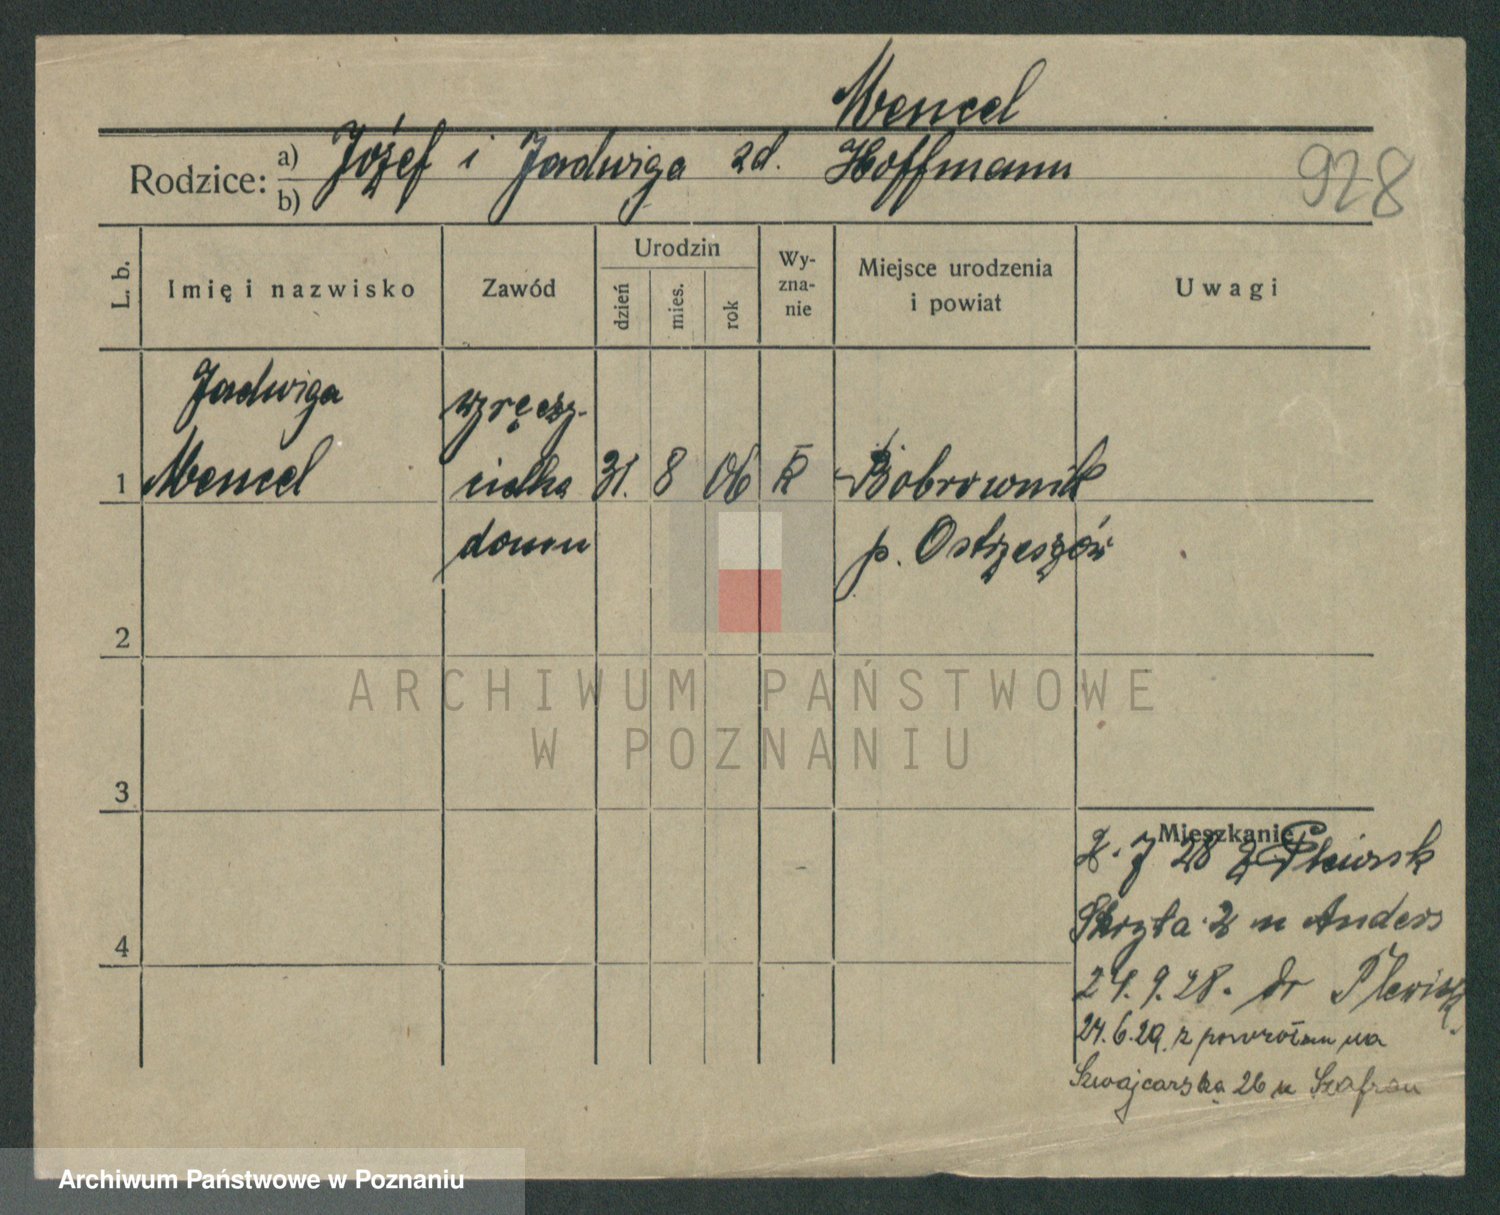 Mencel
Rodzice: a) b) Józef i Jadwiga zd. Hoffmann
928
L. b. Imię i nazwisko Zawód Urodzin dzień mies. rok Wy-zna-nie Miejsce urodzenia i powiat Uwagi
Jadwiga wyręczy-
1 Mencel cielka 31. 8 06 K Bobrownik
domu p. Ostrzeszów
2
ARCHIWUM PAŃSTWOWE
W POZNANIU
3
Mieszkanie
2. 7 28 z
Skryta 2 u Anders
24. 9. 28. do
24.6.29. z powrotem na
4
Szwajcarska 26 u Szafran
Archiwum Państwowe w Poznaniu